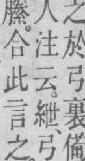 之於弓裏備
人注云紲弓
縢合此言之